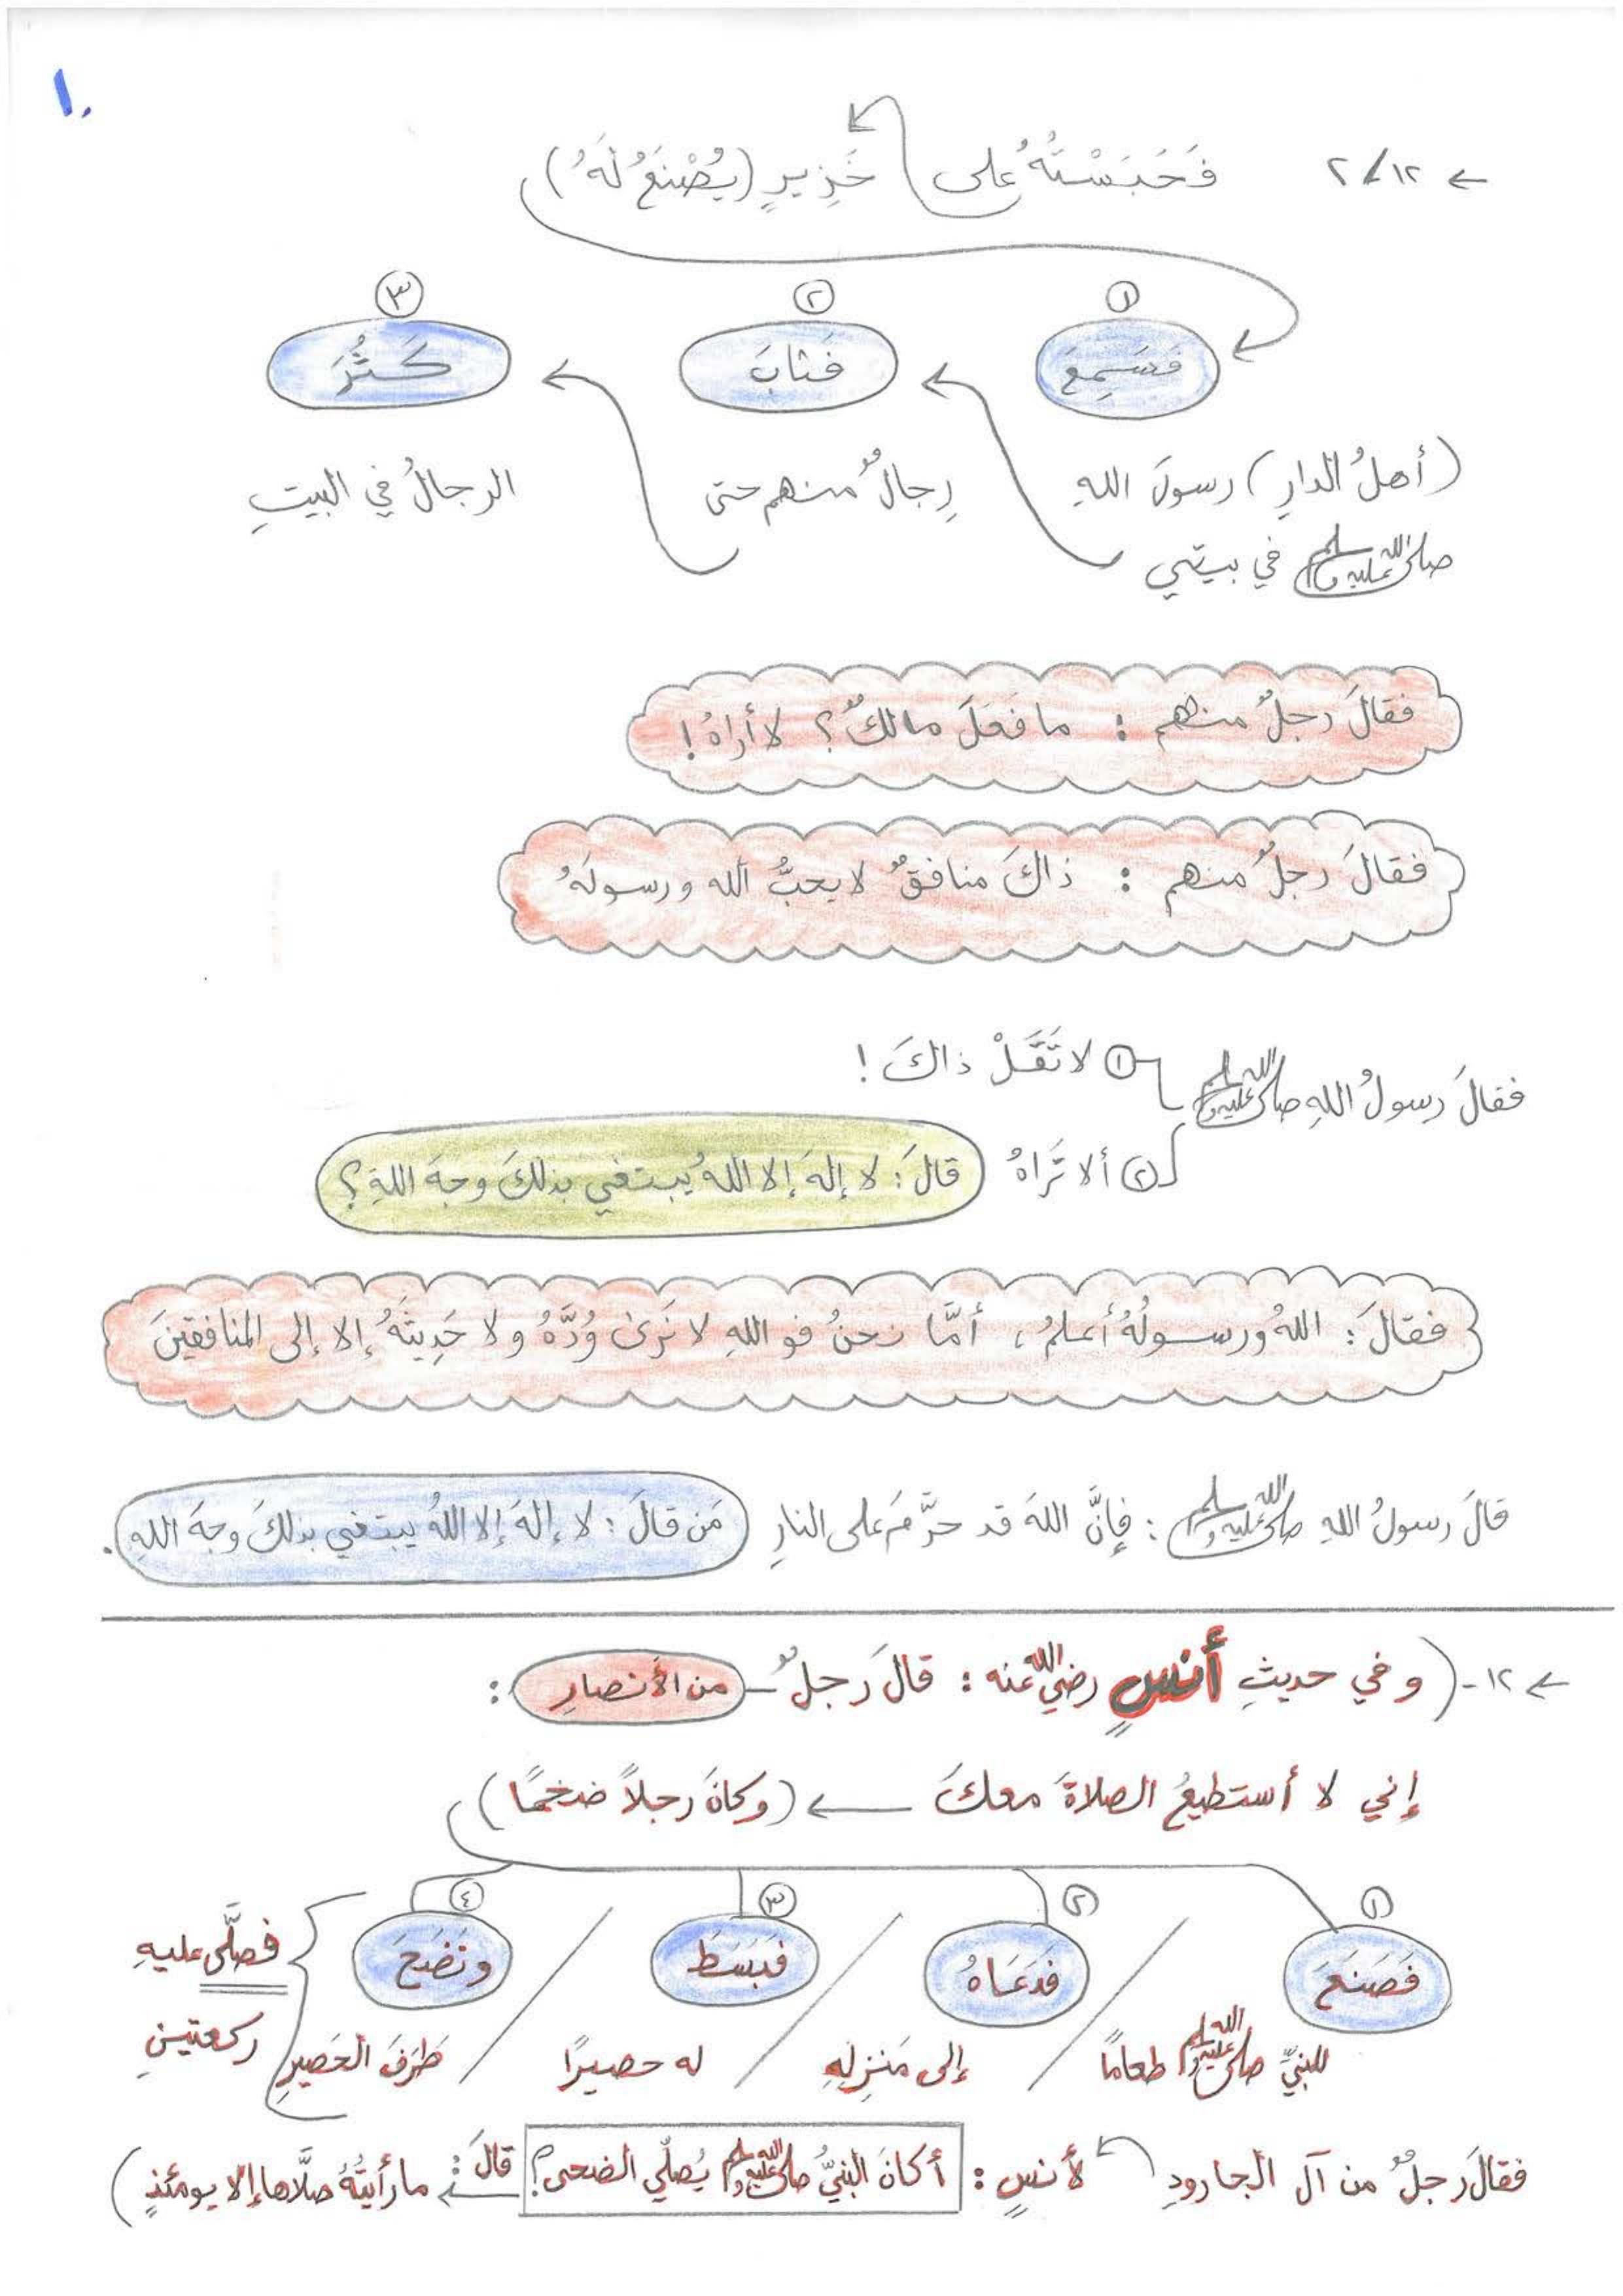 ١.
← ٢/١٢ فَحَبَسْتُهُ على خَزِيرٍ (يُصْنَعُ لَهُ)
١ ٢ ٣
فَسَمِعَ فَثَابَ كَثُرَ
(أهلُ الدارِ) رسولَ اللهِ رِجالٌ منهم حتى الرجالُ في البيتِ
صلى الله عليه وسلم في بيتي
فقالَ رجلٌ منهم : ما فَعَلَ مالكٌ؟ لا أراهُ!
فقالَ رجلٌ منهم : ذاكَ منافقٌ لا يحبُّ الله ورسولَهُ
فقالَ رسولُ اللهِ صلى الله عليه وسلم ١ لا تَقُلْ ذاكَ!
٢ ألا تَراهُ قالَ: لا إلهَ إلا اللهُ يبتغي بذلكَ وجهَ اللهِ؟
فقالَ: اللهُ ورسولُهُ أعلمُ، أمَّا نحنُ فو اللهِ لا نَرى وُدَّهُ ولا حَدِيثَهُ إلا إلى المنافقينَ
قالَ رسولُ اللهِ صلى الله عليه وسلم : فإنَّ اللهَ قد حرَّمَ على النارِ مَن قالَ: لا إلهَ إلا اللهُ يبتغي بذلكَ وجهَ اللهِ.
← ١٢- (وفي حديثِ أنسٍ رضي الله عنه : قالَ رجلٌ - من الأنصارِ :
إني لا أستطيعُ الصلاةَ معكَ ← (وكانَ رجلاً ضخمًا)
١ ٢ ٣ ٤
فَصَنَعَ / فدَعَاهُ / فبَسَطَ / ونَضَحَ فصلَّى عليهِ
للنبيِّ صلى الله عليه وسلم طعامًا إلى مَنزِلِهِ له حصيرًا طَرَفَ الحَصيرِ ركعتينِ
فقالَ رجلٌ من آل الجارودِ لأنسٍ : أكانَ النبيُّ صلى الله عليه وسلم يُصلِّي الضحى؟ قالَ: ما رأيتُهُ صلَّاها إلا يومئذٍ)